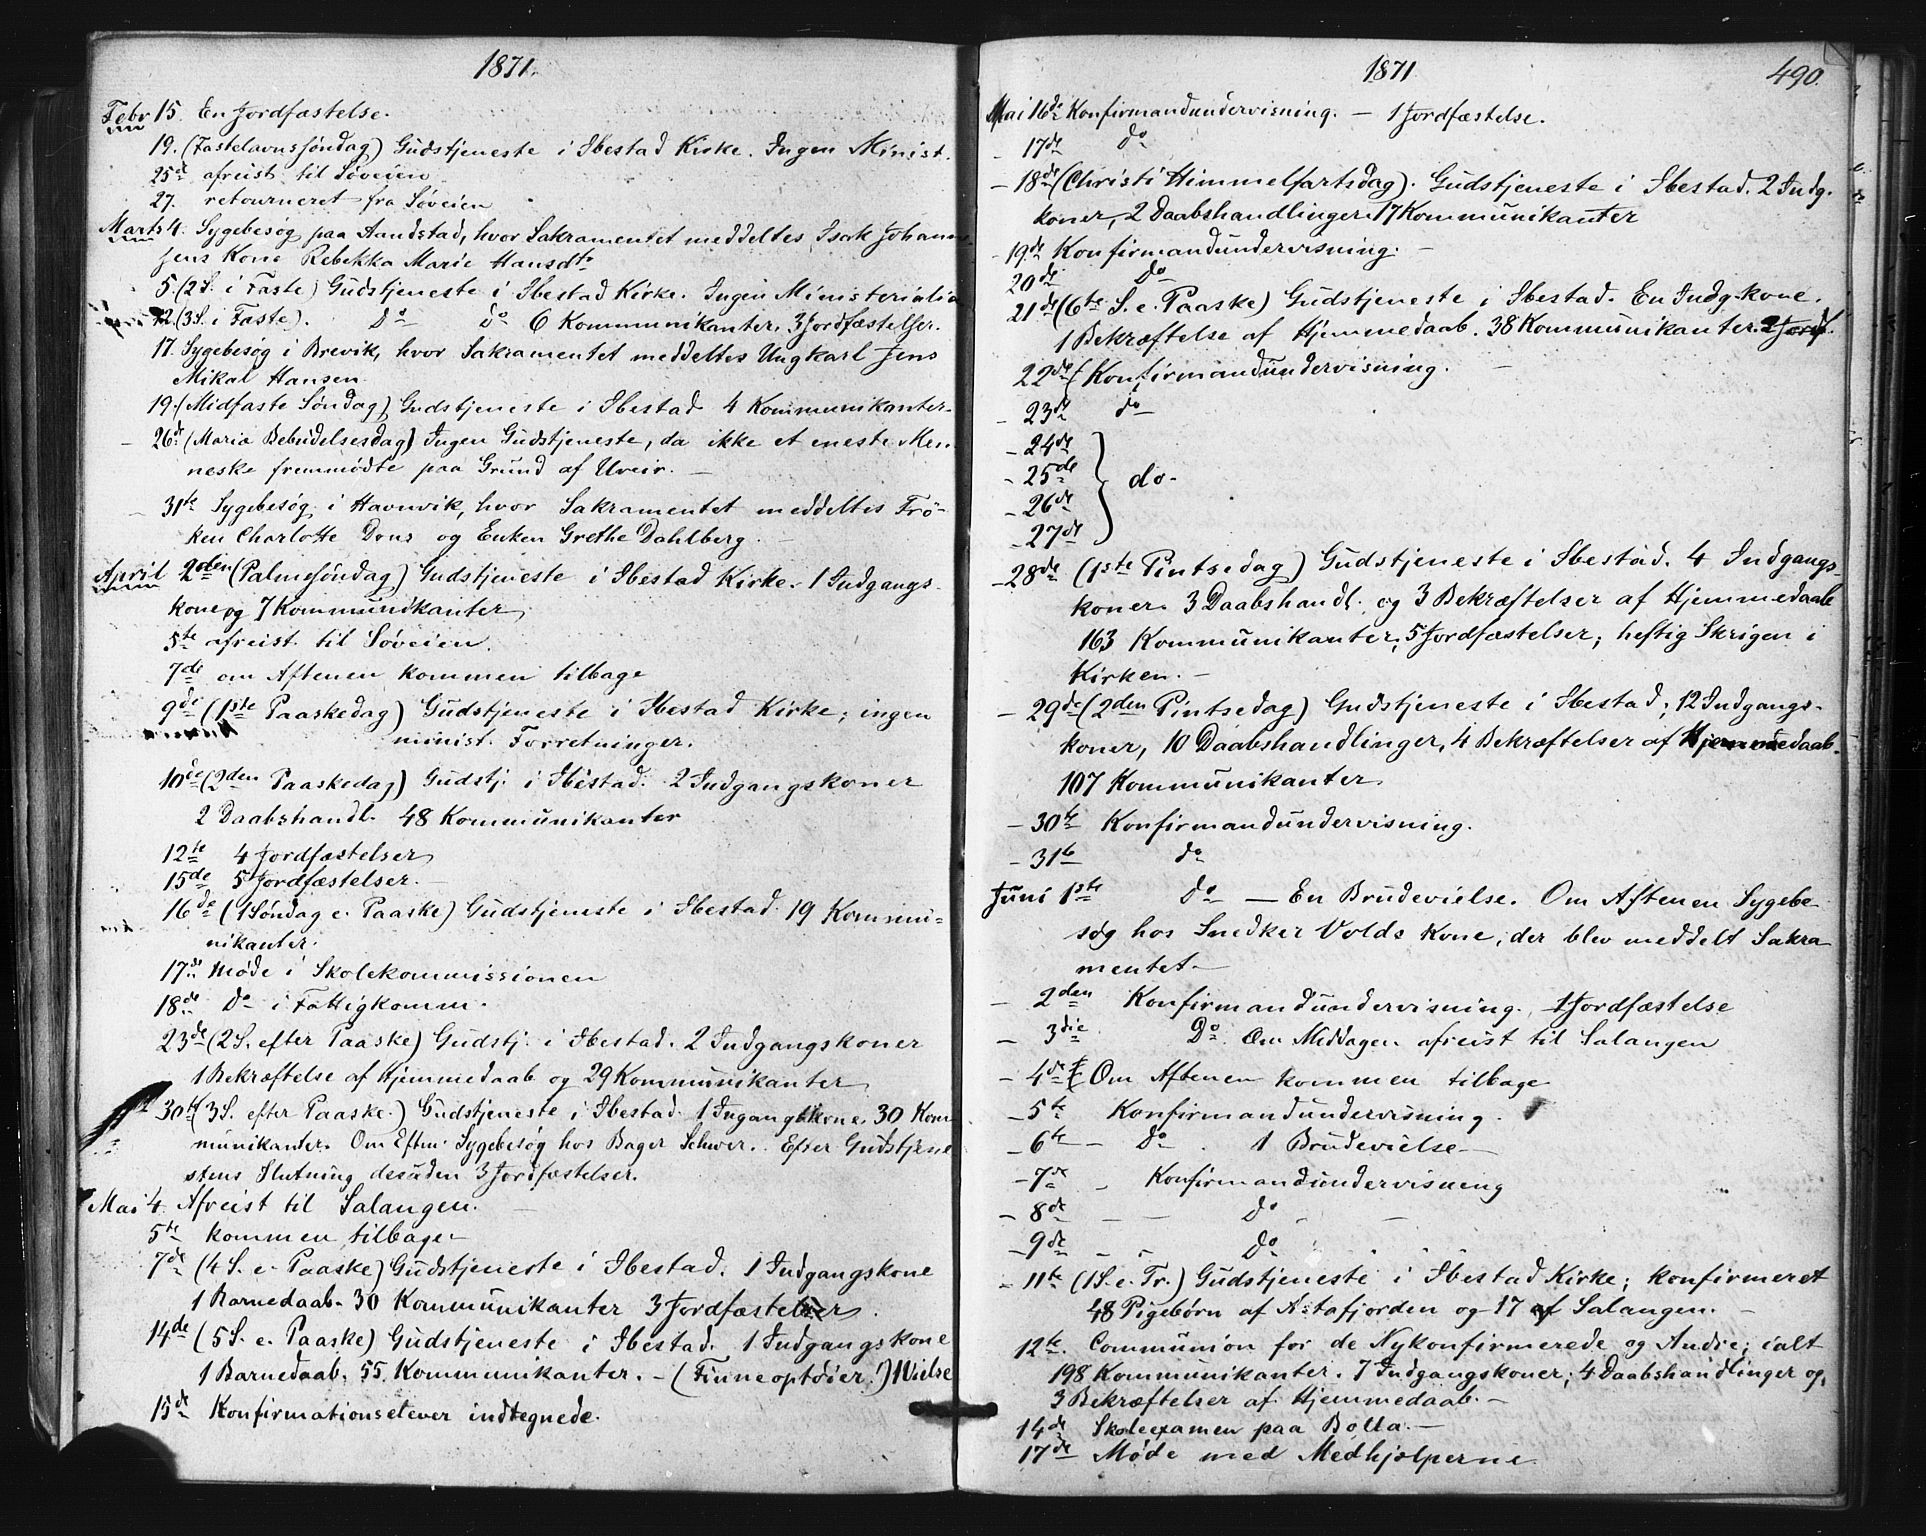 1871.
Febr 15. En Jordfæstelse.
19. (Fastelavnssøndag) Gudstjeneste i Ibestad Kirke. Ingen Minist.
25d afreist til Søveien
27. retourneret fra Søveien
Marts 4. Sygebesøg paa Aandstad, hvor Sakramentet meddeltes Isak Johann-
sens Kone Rebekka Marie Hansdtr
5. (2 S. i Faste) Gudstjeneste i Ibestad Kirke. Ingen Ministerialia
12. (3 S. i Faste). Do Do 6 Kommunikanter. 3 Jordfæstelser.
17. Sygebesøg i Brevik, hvor Sakramentet meddeltes Ungkarl Jens
Mikal Hansen
19. (Midfaste Søndag) Gudstjeneste i Ibestad 4 Kommunikanter.
- 26de (Maria Bebudelsesdag) Ingen Gudstjeneste, da ikke et eneste Men-
neske fremmødte paa Grund af Uveir. -
- 31te Sygebesøg i Havnvik, hvor Sakramentet meddeltes Frø-
ken Charlotte Dons og Enken Grethe Dahlberg. -
April 2den (Palmesøndag) Gudstjeneste i Ibestad Kirke. 1 Indgangs-
kone og 7 Kommunikanter
5te afreist til Søveien.
7de om Aftenen kommen tilbage
9de (1ste Paaskedag) Gudstjeneste i Ibestad Kirke; ingen
minist. Forretninger.
10de (2den Paaskedag) Gudstj. i Ibestad. 2 Indgangskoner
2 Daabshandl. 48 Kommunikanter
12te 4 Jordfæstelser
15de 5 Jordfæstelser. -
16de (1 Søndag e. Paaske) Gudstjeneste i Ibestad. 19 Kommu-
nikanter.
17de Møde i Skolekommissionen
18de Do i Fattigkomm.
23de (2 S. efter Paaske) Gudstj. i Ibestad. 2 Indgangskoner
1 Bekræftelse af Hjemmedaab og 29 Kommunikanter
30te (3 S. efter Paaske.) Gudstjeneste i Ibestad. 1 Ingangskone. 30 Kom
munikanter. Om Eftm. Sygebesøg hos Bager Schwer. Efter Gudstjene
stens Slutning desuden 3 Jordfæstelser.
Mai 4. Afreist til Salangen. -
5te kommen tilbage -
7de (4 S. e. Paaske) Gudstjeneste i Ibestad. 1 Indgangskone
1 Barnedaab. 30 Kommunikanter 3 Jordfæstelser.
14de (5 S. e. Paaske) Gudstjeneste i Ibestad. 1 Indgangskone
1 Barnedaab. 55. Kommunikanter. - (Finneoptøier!) 1 Vielse
15de Konfirmationselever indtegnede.
1871 490.
Mai 16de Konfirmandundervisning. - 1 Jordfæstelse.
- 17de do
- 18de (Christi Himmelfartsdag). Gudstjeneste i Ibestad. 2 Indg.
koner, 2 Daabshandlinger. 17 Kommunikanter
- 19de Konfirmandundervisning. -
20de Do
21de (6te S. e. Paaske) Gudstjeneste i Ibestad. En Indg.kone.
1 Bekræftelse af Hjemmedaab. 38 Kommunikanter. 2 Jordf.
22de (Konfirmandundervisning. -
- 23de do
- 24de
- 25de do-
- 26de
- 27de
- 28de (1ste Pintsedag) Gudstjeneste i Ibestad. 4 Indgangs-
koner. 3 Daabshandl. og 3 Bekræftelser af Hjemmedaab
163 Kommunikanter; 5 Jordfæstelser; heftig Skrigen i
Kirken. -
- 29de (2den Pintsedag) Gudstjeneste i Ibestad; 12 Indgangs-
koner, 10 Daabshandlinger, 4 Bekræftelser af Hjemmedaab.
107 Kommunikanter.
- 30te Konfirmandundervisning.
- 31te do
Juni 1ste Do - En Brudevielse. Om Aftenen Sygebe-
søg hos Snedker Volds Kone, der blev meddelt Sakra
mentet. -
- 2den Konfirmandundervisning. 1 Jordfæstelse
- 3die Do. Om Middagen afreist til Salangen
- 4de Om Aftenen kommen tilbage
- 5te Konfirmandundervisning.
- 6te - Do. 1 Brudevielse -
- 7de - Konfirmandundervisning
- 8de - - Do -
- 9de - - Do
- 11te (1 S. e. Tr.) Gudstjeneste i Ibestad Kirke; konfirmeret
48 Pigebørn af Astafjorden og 17 af Salangen. -
12te. Communion for de Nykonfirmerede og Andre; ialt
198 Kommunikanter. 7 Indgangskoner; 4 Daabshandlinger og
3 Bekræftelser af Hjemmedaab. -
14de Skoleexamen paa Bolla. -
17de Møde med Medhjælperne